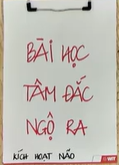 BÀI HỌC
TÂM ĐẮC
NGỘ RA
KÍCH HOẠT NÃO